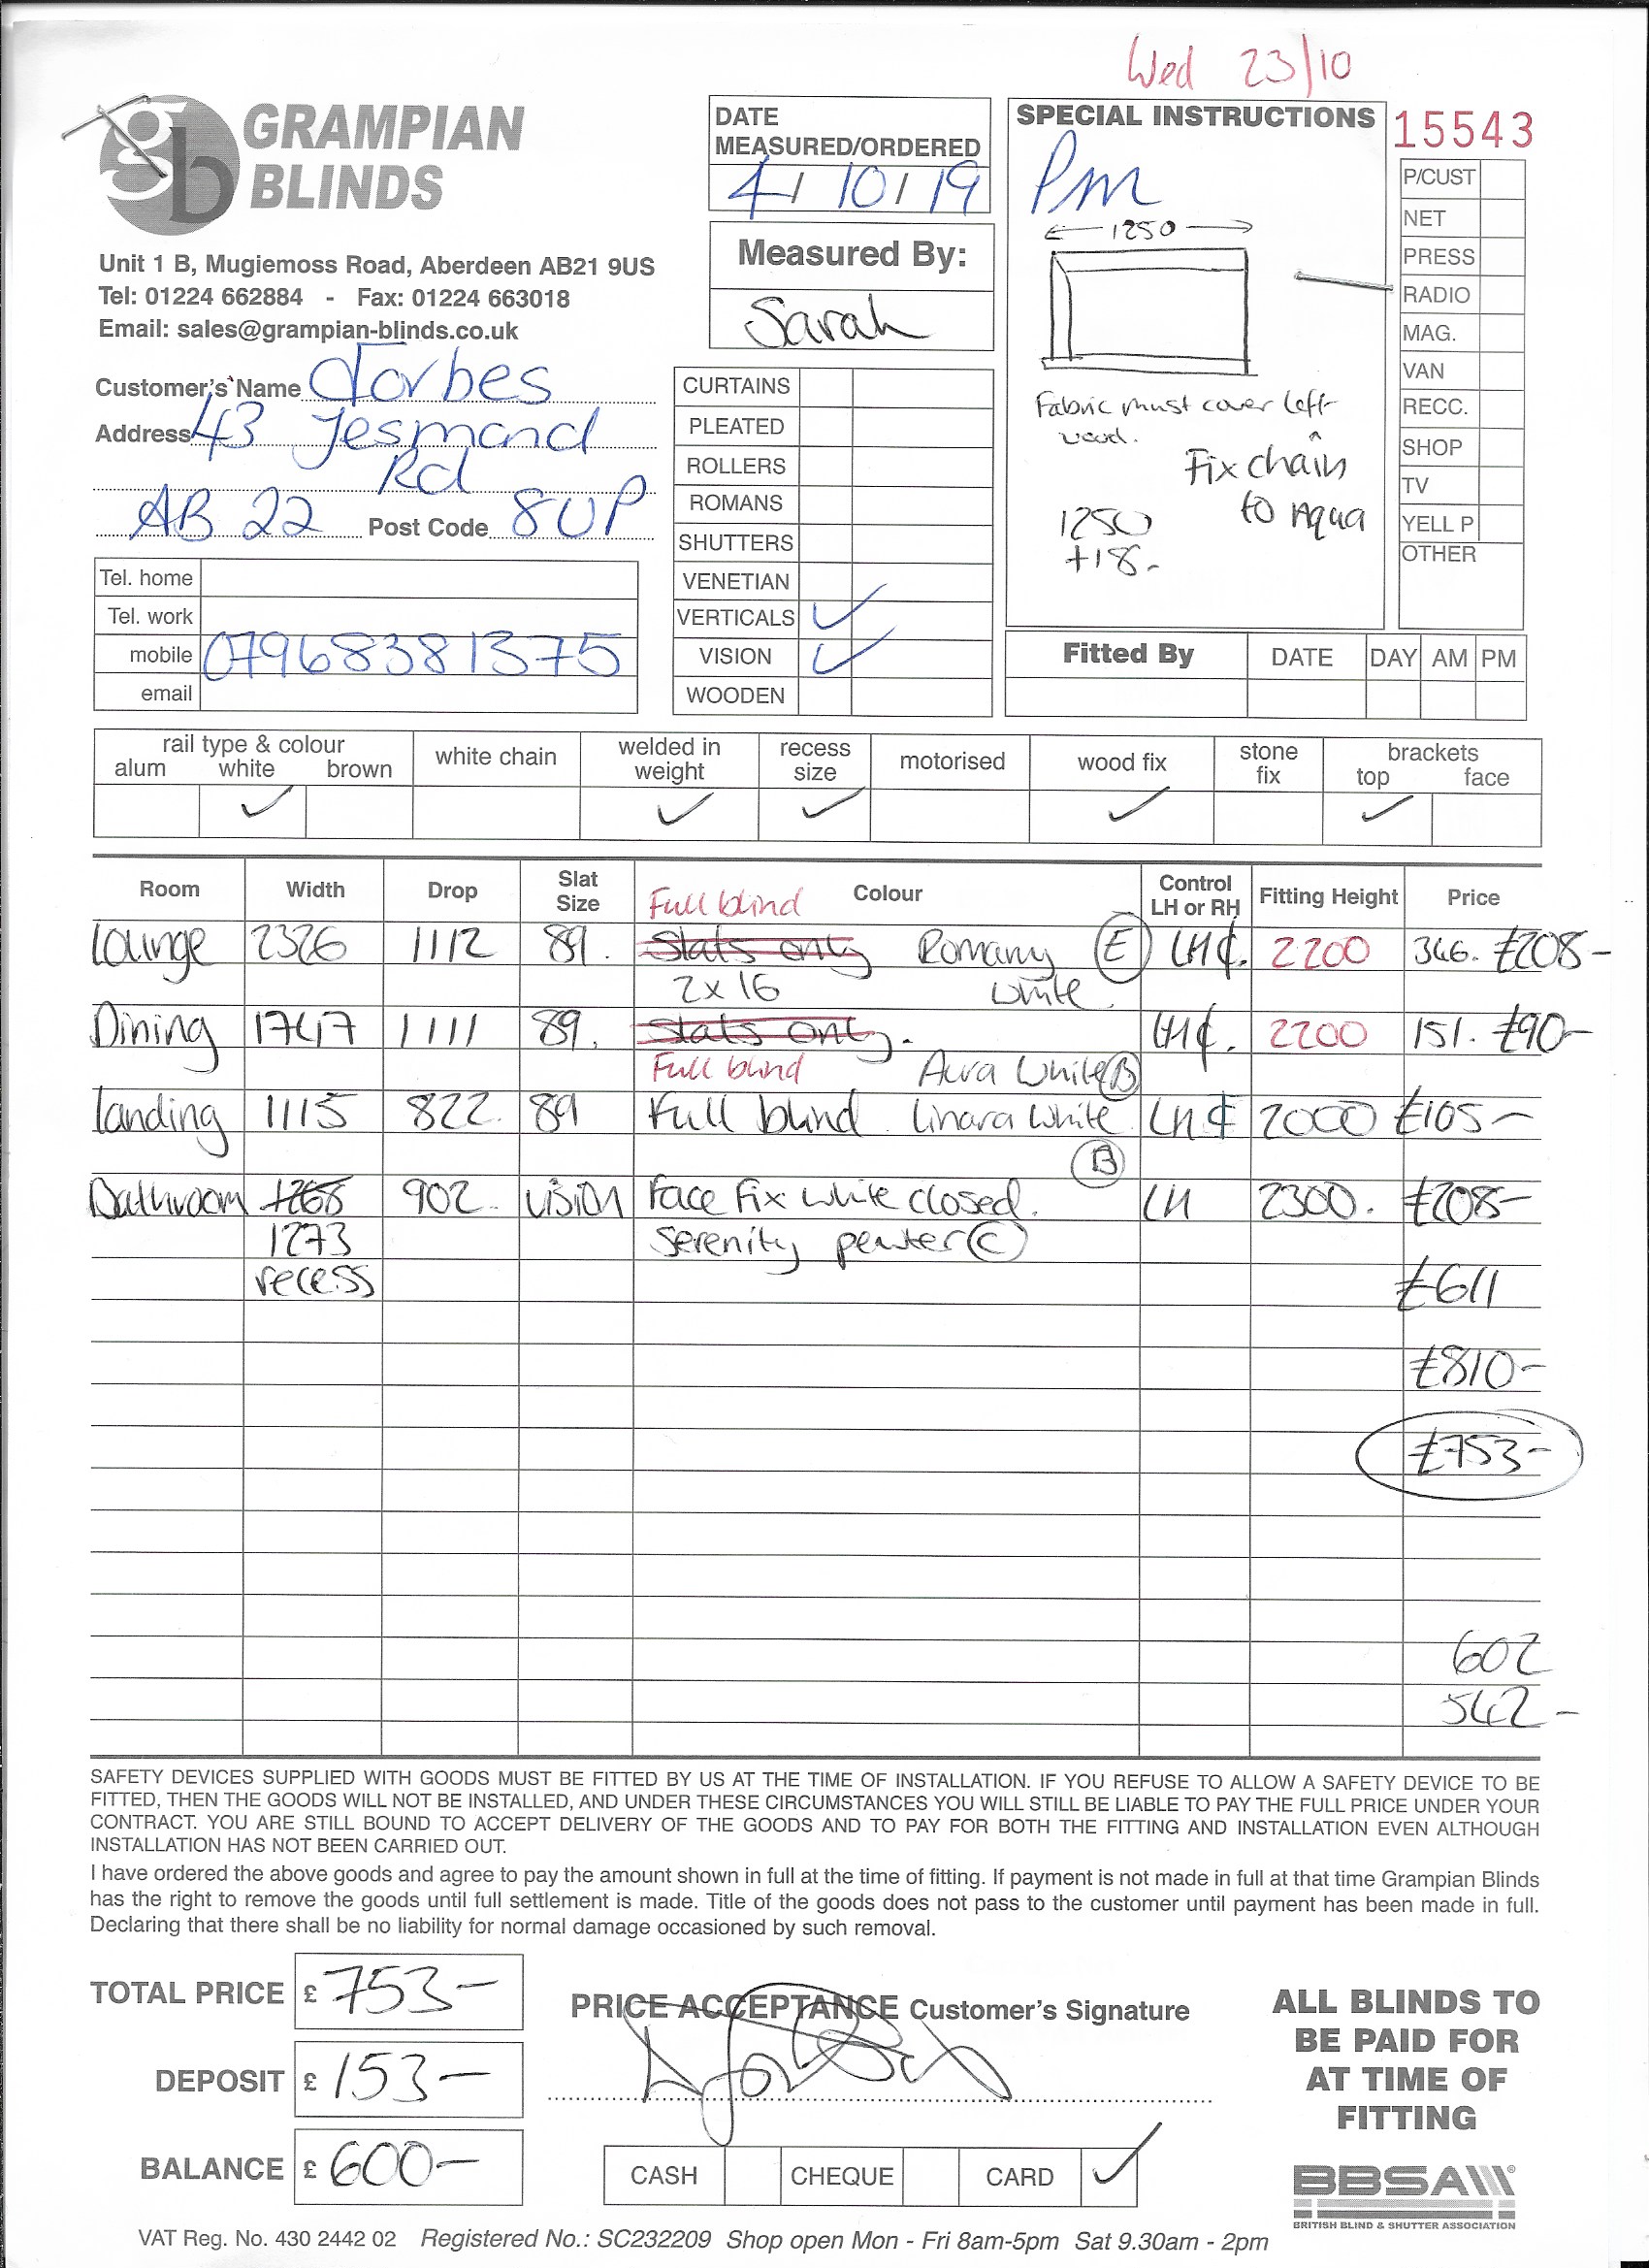 Wed 23/10
GRAMPIAN
BLINDS
Unit 1 B, Mugiemoss Road, Aberdeen AB21 9US
Tel: 01224 662884 - Fax: 01224 663018
Email: sales@grampian-blinds.co.uk
Customer's Name Forbes
Address 43 Jesmond
Rd
AB 22 Post Code 8UP
Tel. home
Tel. work
mobile 07968381375
email
DATE
MEASURED/ORDERED
4/ 10/ 19
Measured By:
Sarah
CURTAINS
PLEATED
ROLLERS
ROMANS
SHUTTERS
VENETIAN
VERTICALS ✓
VISION ✓
WOODEN
SPECIAL INSTRUCTIONS
Pm
1250
Fabric must cover left
wood.
Fix chain
to Aqua
1250
+18-
15543
P/CUST
NET
PRESS
RADIO
MAG.
VAN
RECC.
SHOP
TV
YELL P
OTHER
Fitted By DATE DAY AM PM
rail type & colour
alum white brown
white chain
welded in
weight
recess
size
motorised
wood fix
stone
fix
brackets
top face
✓ ✓ ✓ ✓ ✓
Room Width Drop Slat Size Colour Control LH or RH Fitting Height Price
Full blind
Lounge 2326 1112 89. Slats only Romany (E) LH¢. 2200 346. £208-
2x16 White
Dining 1747 1111 89. Slats only. LH¢. 2200 151. £90-
Full blind Aura White (B)
Landing 1115 822. 89 Full blind Linara White LH¢ 2000 £105-
(B)
Bathroom 1268 902. vision Face Fix White closed. LH 2300. £208-
1273 Serenity pewter (C)
recess £611
£810-
£753-
602
542-
SAFETY DEVICES SUPPLIED WITH GOODS MUST BE FITTED BY US AT THE TIME OF INSTALLATION. IF YOU REFUSE TO ALLOW A SAFETY DEVICE TO BE
FITTED, THEN THE GOODS WILL NOT BE INSTALLED, AND UNDER THESE CIRCUMSTANCES YOU WILL STILL BE LIABLE TO PAY THE FULL PRICE UNDER YOUR
CONTRACT. YOU ARE STILL BOUND TO ACCEPT DELIVERY OF THE GOODS AND TO PAY FOR BOTH THE FITTING AND INSTALLATION EVEN ALTHOUGH
INSTALLATION HAS NOT BEEN CARRIED OUT.
I have ordered the above goods and agree to pay the amount shown in full at the time of fitting. If payment is not made in full at that time Grampian Blinds
has the right to remove the goods until full settlement is made. Title of the goods does not pass to the customer until payment has been made in full.
Declaring that there shall be no liability for normal damage occasioned by such removal.
TOTAL PRICE £ 753-
DEPOSIT £ 153-
BALANCE £ 600-
PRICE ACCEPTANCE Customer's Signature
CASH CHEQUE CARD ✓
ALL BLINDS TO
BE PAID FOR
AT TIME OF
FITTING
BBSA
BRITISH BLIND & SHUTTER ASSOCIATION
VAT Reg. No. 430 2442 02 Registered No.: SC232209 Shop open Mon - Fri 8am-5pm Sat 9.30am - 2pm